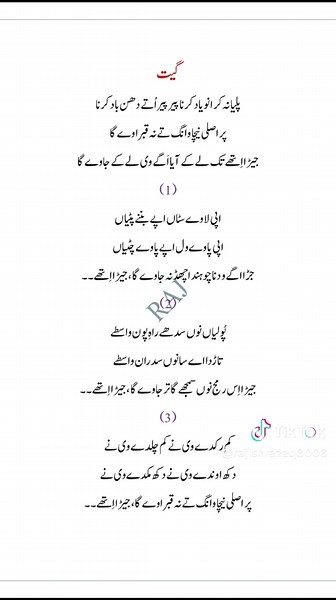 گیت
پلیانہ کرانو یاد کرنا پیر پیر اُتے دھن باد کرنا
پر اصلی نیچا وانگ تے نہ قبر اوے گا
جیڑا اِتھے تک لے کے آیا اُگے وی لے کے جاوے گا
(1)
اپی لاوے سٹاں اپے بننے پٹیاں
اپی پاوے ول اپے پاوے چٹیاں
جڑا اگے ودنا چوہندا چھڈ نہ جاوے گا، جیڑا اِتھے۔۔
RAJ
(2)
پُولیاں نوں سدھے راہ پون واسطے
تاڑدا اے سانوں سدران واسطے
جیڑا اِس رمج نوں سمجھے گا تر جاوے گا، جیڑا اِتھے۔۔
(3)
کم رکدے وی نے کم چلدے وی نے
دکھ اوندے وی نے دکھ مکدے وی نے
پر اصلی نیچا وانگ تے نہ قبر اوے گا، جیڑا اِتھے۔۔
TikTok